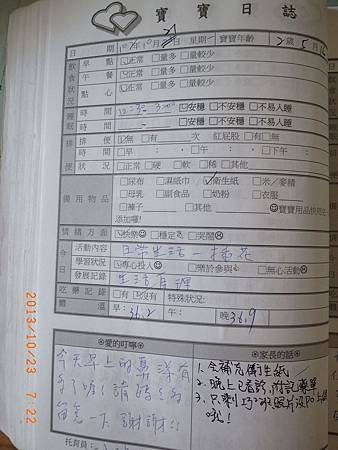 寶寶日誌
日期 102年10月21日 星期一 寶寶年齡 2歲5月
飲食狀況 早點 ☑正常 □量多 □量較少
午餐 ☑正常 □量多 □量較少
點心 ☑正常 □量多 □量較少
睡眠 時間 12:30 3:00 ☑安穩 □不安穩 □不易入睡
時間 ☑安穩 □不安穩 □不易入睡
排便 排便 ☑無 □有 次 紅屁股 □有 □無
狀況 時間 □早: □午: □下午:
□正常 □硬 □軟 □稀 □其他
備用物品 □尿布 □濕紙巾 ☑衛生紙 □米/麥精
□母乳 □副食品 □奶粉 □衣服
□褲子 □其他 ☺寶寶用品快用完
添加囉!
情緒方面 ☑快樂☺ □穩定 □哭鬧
今日 活動內容 日常生活-插花
學習狀況 ☑專心投入☺ □樂於參與 □無心活動
發展記錄 生活自理
吃藥記錄 □有 ☑沒有 特殊狀況:
體溫 早:36.2 午: 晚36.9
◎愛的叮嚀◎
今天早上的
請媽媽
留意一下 謝謝!!
托育員
◎家長的話◎
1. 今補充衛生紙
2. 晚上已看診, 附記藥單
3. 只剩巧2班照片沒PO上網
啦!
2013/10/23 7:22